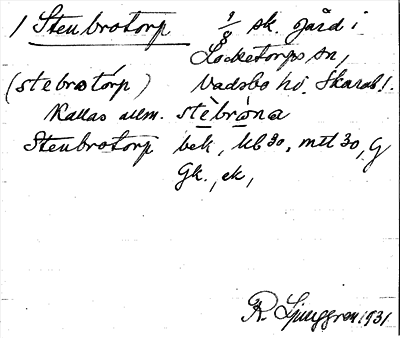 1 Stenbrotorp 1/8 sk. gård i
Locketorps sn,
(stebrotórp) Vadsbo hd. Skarab. l.
Kallas allm. stèbròna
Stenbrotorp bek, kb 30, mtl 30, G
Gk., ek,
R. Ljunggren 1931